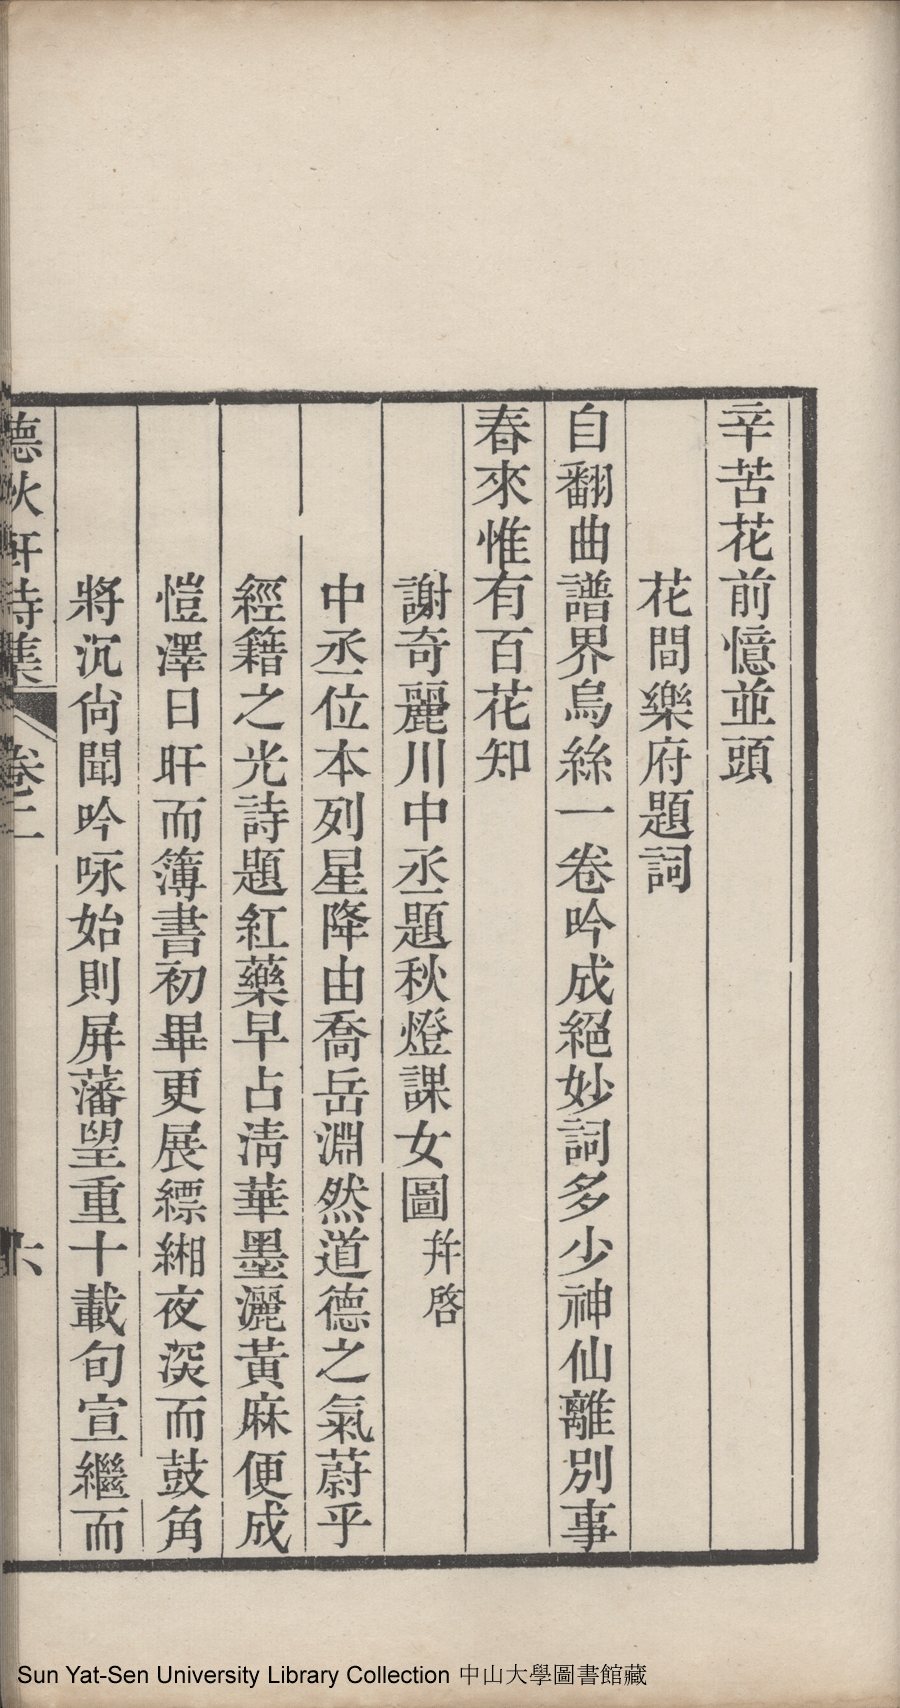 辛苦花前憶並頭
花間樂府題詞
自翻曲譜界烏絲一卷吟成絕妙詞多少神仙離別事
春來惟有百花知
謝奇麗川中丞題秋燈課女圖幷啓
中丞位本列星降由喬岳淵然道德之氣蔚乎
經籍之光詩題紅藥早占淸華墨灑黃麻便成
愷澤日旰而簿書初畢更展縹緗夜深而鼓角
將沉尙聞吟咏始則屏藩望重十載旬宣繼而
德秋軒詩集 卷二 六
Sun Yat-Sen University Library Collection 中山大學圖書館藏